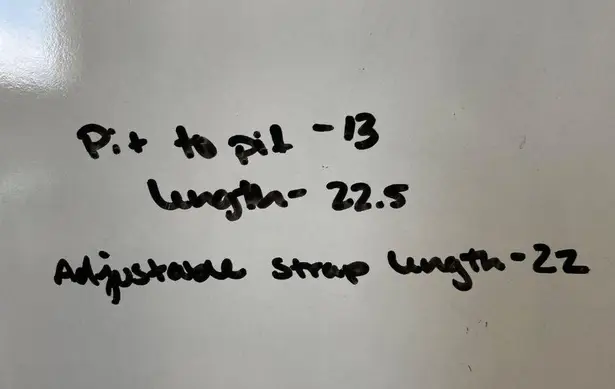 Pit to pit - 13
length - 22.5
Adjustable strap length - 22